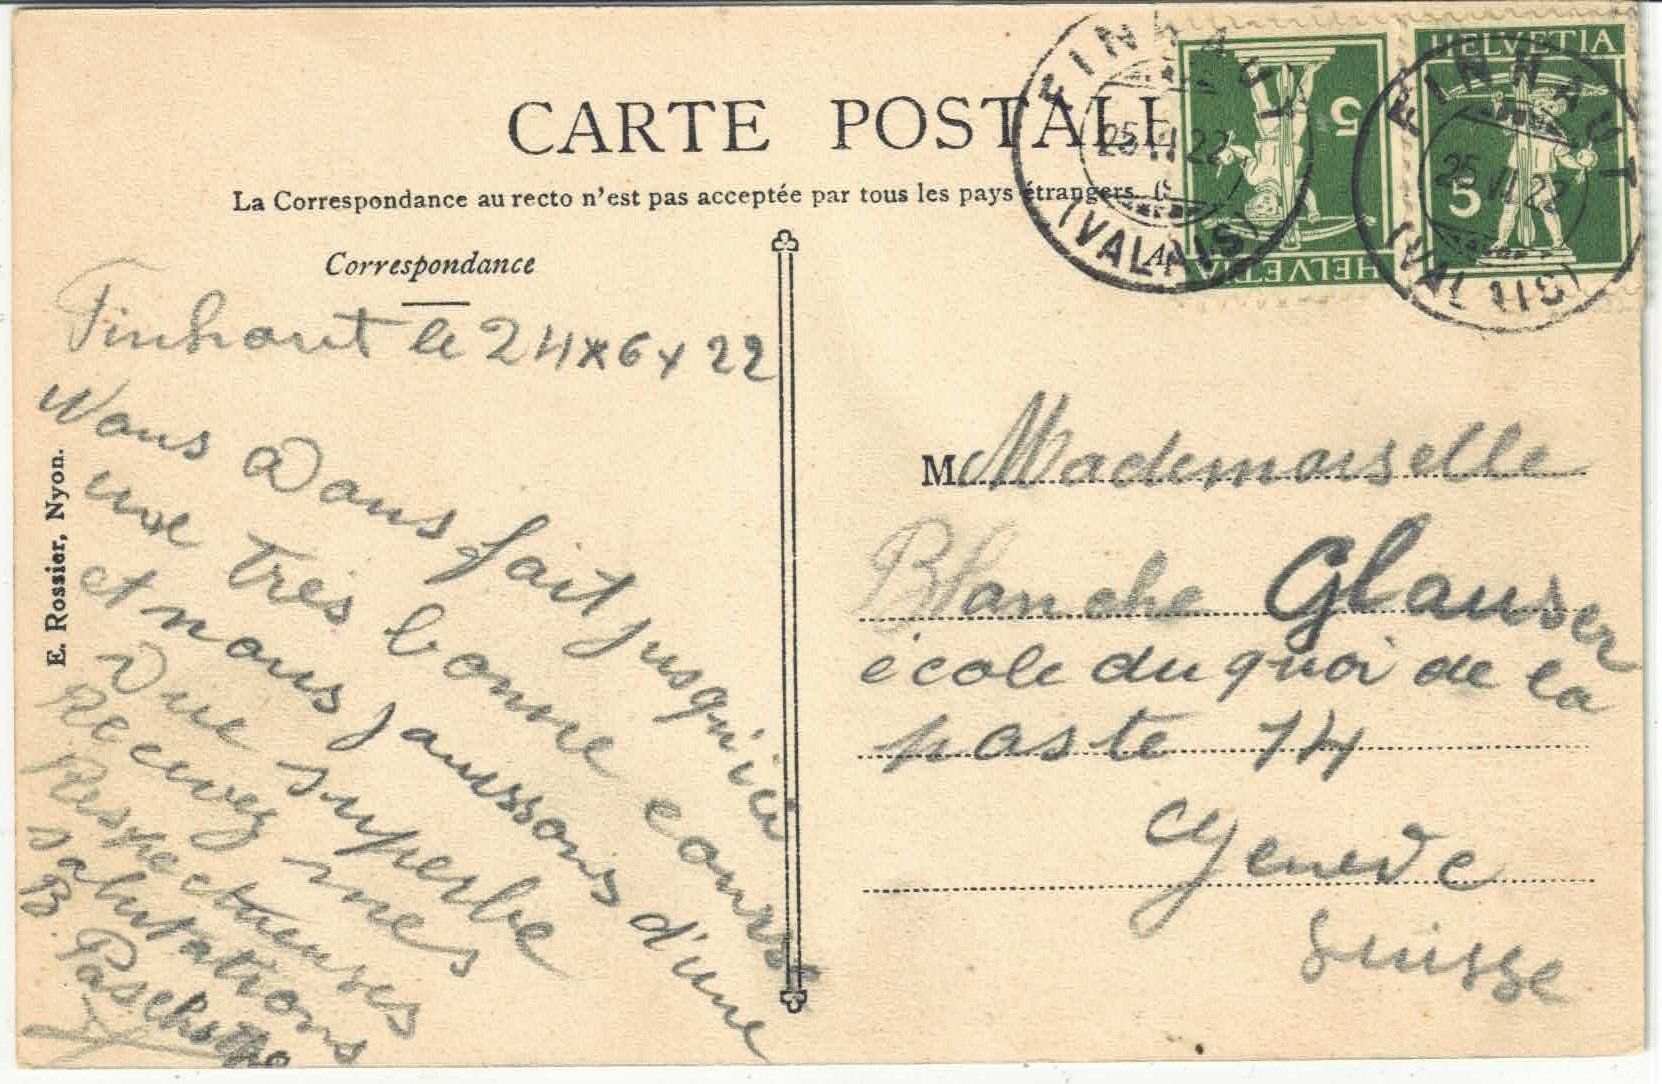 CARTE POSTALE
La Correspondance au recto n'est pas acceptée par tous les pays étrangers
Correspondance
Finhaut le 24 x 6 x 22
Nous avons fait jusqu'ici
une très bonne course
et nous jaussons d'une
vue superbe
Recevez mes
Respectueuses
salutations
B.
E. Rossier, Nyon.
HELVETIA
5
HELVETIA
5
FINHAUT
25 VI 22
(VALAIS)
FINHAUT
25 VI 22
(VALAIS)
M Mademoiselle
Blanche Glauser
école du quoi de la
poste 14
Genève
Suisse